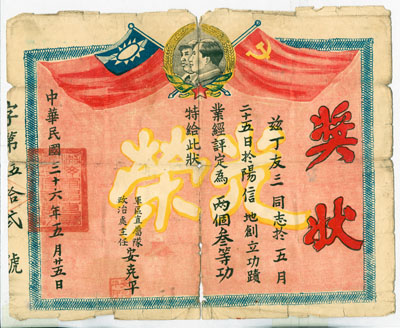 獎狀
茲丁友三同志於五月
二十五日於陽信地創立功蹟
業經評定為兩個叁等功
特給此狀
榮
軍區直屬隊
政治處主任
安克平
中華民國三十六年五月廿五日
字第五拾貳號